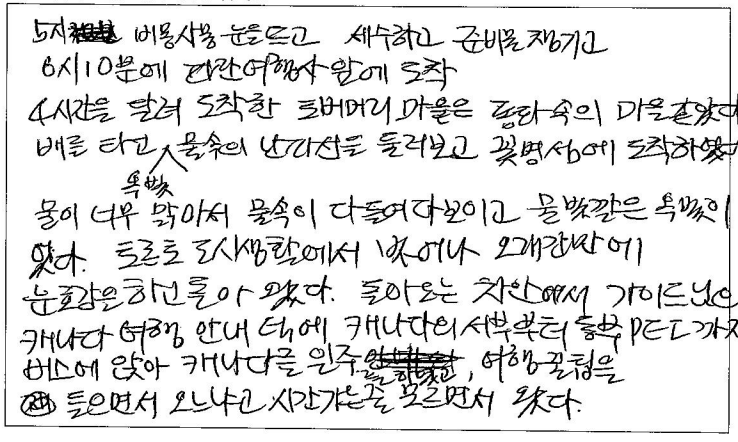 5시 비몽사몽 눈을뜨고 세수하고 준비물 챙기고
6시10분에 파란여행사 앞에 도착
4시간을 달려 도착한 토버머리 마을은 동화속의 마을같았다
배를 타고 옥빛 물속의 난파선을 둘러보고 꽃병섬에 도착하였다
물이 너무 맑아서 물속이 다들여다보이고 물빛깔은 옥빛이
었다. 토론토 도시생활에서 벗어나 오래간만에
눈호강을하고돌아 왔다. 돌아오는 차안에서 가이드님은
캐나다 여행 안내 덕에 캐나다의 서부부터 동부 PEI 까지
버스에 앉아 캐나다를 일주, 여행 꿀팁을
들으면서 오느냐고 시간가는줄 모르면서 왔다.